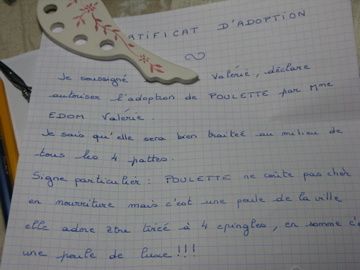 RTIFICAT D'ADOPTION
Je soussigné Valérie, déclare
autoriser l'adoption de POULETTE par Mme
EDOM Valérie
Je sais qu'elle sera bien traitée au milieu de
tous les 4 pattes.
Signe particulier : POULETTE ne coûte pas cher
en nourriture mais c'est une poule de la ville
elle adore être tirée à 4 épingles, en somme c'e
une poule de luxe !!!